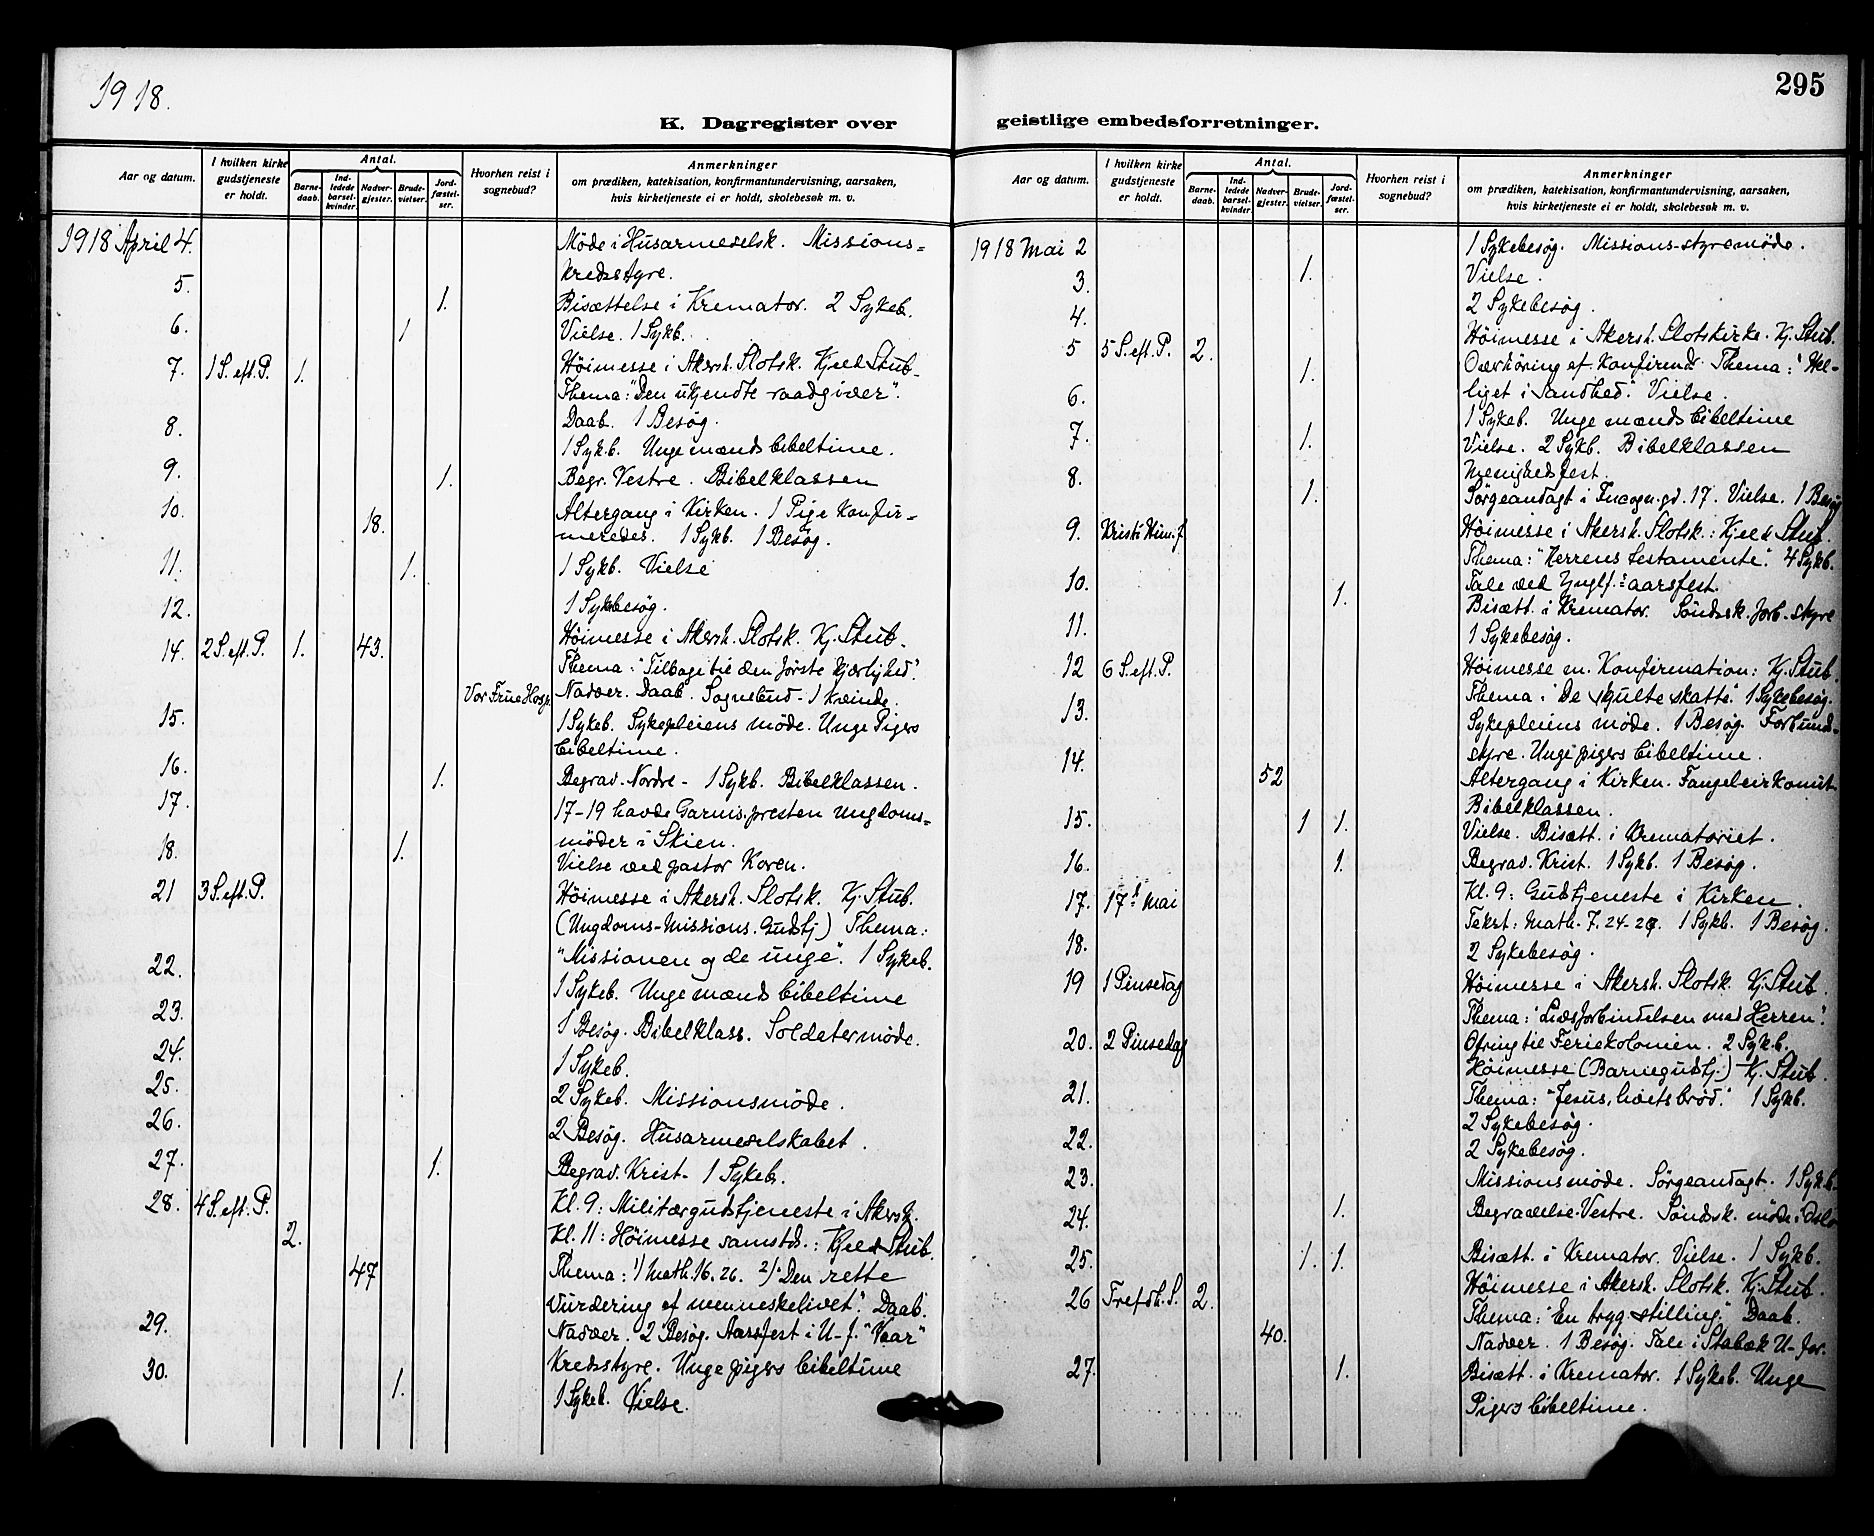 1918.
295
K. Dagregister over geistlige embedsforretninger.
Aar og datum.
I hvilken kirke gudstjeneste er holdt.
Antal.
Barnedaab.
Indledede barselkvinder.
Nadvergjester.
Brudevielser.
Jordfæstelser.
Hvorhen reist i sognebud?
Anmerkninger
om prædiken, katekisation, konfirmantundervisning, aarsaken,
hvis kirketjeneste ei er holdt, skolebesøk m. v.
1918 April 4. Møde i Husarmeselsk. Missions=
kredsstyre.
5. 1. Bisættelse i Kremator. 2 Sykeb.
6. 1 Vielse. 1 Sykb.
7. 1 S. eft. P. 1. Höimesse i Akersh. Slotsk. Kjeld Stub.
Thema: "Den ukjendte raadgiver".
Daab. 1 Besøg.
8. 1 Sykb. Unge mænds bibeltime.
9. 1. Begr. Vestre. Bibelklassen
10. 18. Altergang i Kirken. 1 Pige Konfir=
meredes. 1 Sykb. 1 Besøg.
11. 1. 1 Sykb. Vielse
12. 1 Sykebesøg.
14. 2 S. eft. P. 1. 43. Höimesse i Akersh. Slotsk. Kj. Stub.
Thema: "Tilbage til den første kjærlighed".
Vor Frue Hosp. Nadver. Daab. Sognebud - 1 kvinde.
15. 1 Sykeb. Sykepleiens møde. Unge Pigers
bibeltime.
16. 1. Begrav. Nordre - 1 Sykb. Bibelklassen.
17. 17-19 havde Garnis.presten ungdoms=
møder i Skien.
18. 1. Vielse ved pastor Koren.
21 3 S. eft. P. Höimesse i Akersh. Slotsk. Kj. Stub.
(Ungdoms-Missions. Gudstj) Thema:
"Missionen og de unge". 1 Sykeb.
22. 1 Sykeb. Unge mænds bibeltime
23. 1 Besøg. Bibelklass. Soldatermøde.
24. 1 Sykeb.
25. 2 Sykeb. Missionsmøde.
26. 2 Besøg. Husarmeselskabet.
27. 1. Begrav. Krist. 1 Sykeb.
28. 4 S. eft. P. Kl. 9: Militærgudstjeneste i Akersh.
2. Kl. 11: Höimesse samstds.: Kjeld Stub.
47 Thema: 1) Math. 16. 26. 2) "Den rette
Vurdering af menneskelivet". Daab.
29. Nadver. 2 Besøg. Aarsfest i U-f. "Vaar"
Kredsstyre. Unge pigers bibeltime
30. 1. 1 Sykeb. Vielse.
Aar og datum.
I hvilken kirke gudstjeneste er holdt.
Antal.
Barnedaab.
Indledede barselkvinder.
Nadvergjester.
Brudevielser.
Jordfæstelser.
Hvorhen reist i sognebud?
Anmerkninger
om prædiken, katekisation, konfirmantundervisning, aarsaken,
hvis kirketjeneste ei er holdt, skolebesøk m. v.
1918 Mai 2 1 Sykebesøg. Missions-styremøde.
3. 1. Vielse.
4. 2 Sykebesøg.
5 5 S. eft. P. 2. Höimesse i Akersh. Slotskirke. Kj. Stub.
1. Overhöring af Konfirmd. Thema: "Hel-
liget i Sandhed". Vielse.
6. 1 Sykeb. Unge mænds bibeltime
7. 1. Vielse. 2 Sykb. Bibelklassen
Menighedsfest.
8. 1. Sørgeandagt i Incogn.gd. 17. Vielse. 1 Besøg
9. Kristi Him.f. Höimesse i Akersh. Slotsk.: Kjeld Stub.
Thema: "Herrens testamente". 4 Sykb.
Tale vedYnglf.:s aarsfest.
10. 1. Bisætt. i Kremator. Söndsk. forb. styre
11. 1 Sykebesøg.
12 6 S. eft. P. Höimesse m. Konfirmation: Kj. Stub.
Thema: "De skjulte skatte". 1 Sykebesøg.
13. Sykepleiens møde. 1 Besøg. Forbunds-
styre. Unge pigers bibeltime.
14. 52 Altergang i Kirken. Fangeleirkomit
Bibelklassen.
15. 1 1. Vielse. Bisætt. i Krematoriet.
16. 1. Begrav. Krist. 1 Sykb. 1 Besøg.
17. 17de Mai Kl. 9: Gudstjeneste i Kirken.
Tekst: Math. 7. 24-29. 1 Sykb. 1 Besøg.
18. 2 Sykebesøg.
19 1 Pinsedag Höimesse i Akersh. Slotsk. Kj. Stub.
Thema: "Livsforbindelsen med Herren".
Ofring til Feriekolonien. 2 Sykb.
20. 2 Pinsedag Höimesse (Barnegudstj.) Kj. Stub.
Thema: "Jesus, livets brød." 1 Sykb.
21. 2 Sykebesøg.
22. 2 Sykebesøg.
23. Missionsmøde. Sørgeandagt. 1 Sykb.
24. 1. Begravelse. Vestre. Söndsk. møde i Oslo
25. 1. 1. Bisætt. i Kremator. Vielse. 1 Sykb.
26 Trefdh. S. 2. Höimesse i Akersh. Slotsk. Kj. Stub.
Thema: "En tryg stilling". Daab.
40. Nadver. 1 Besøg. Tale i Stabæk U-for.
27. 1. Bisætt. i Kremator. 1 Sykeb. Unge
Pigers bibeltime.